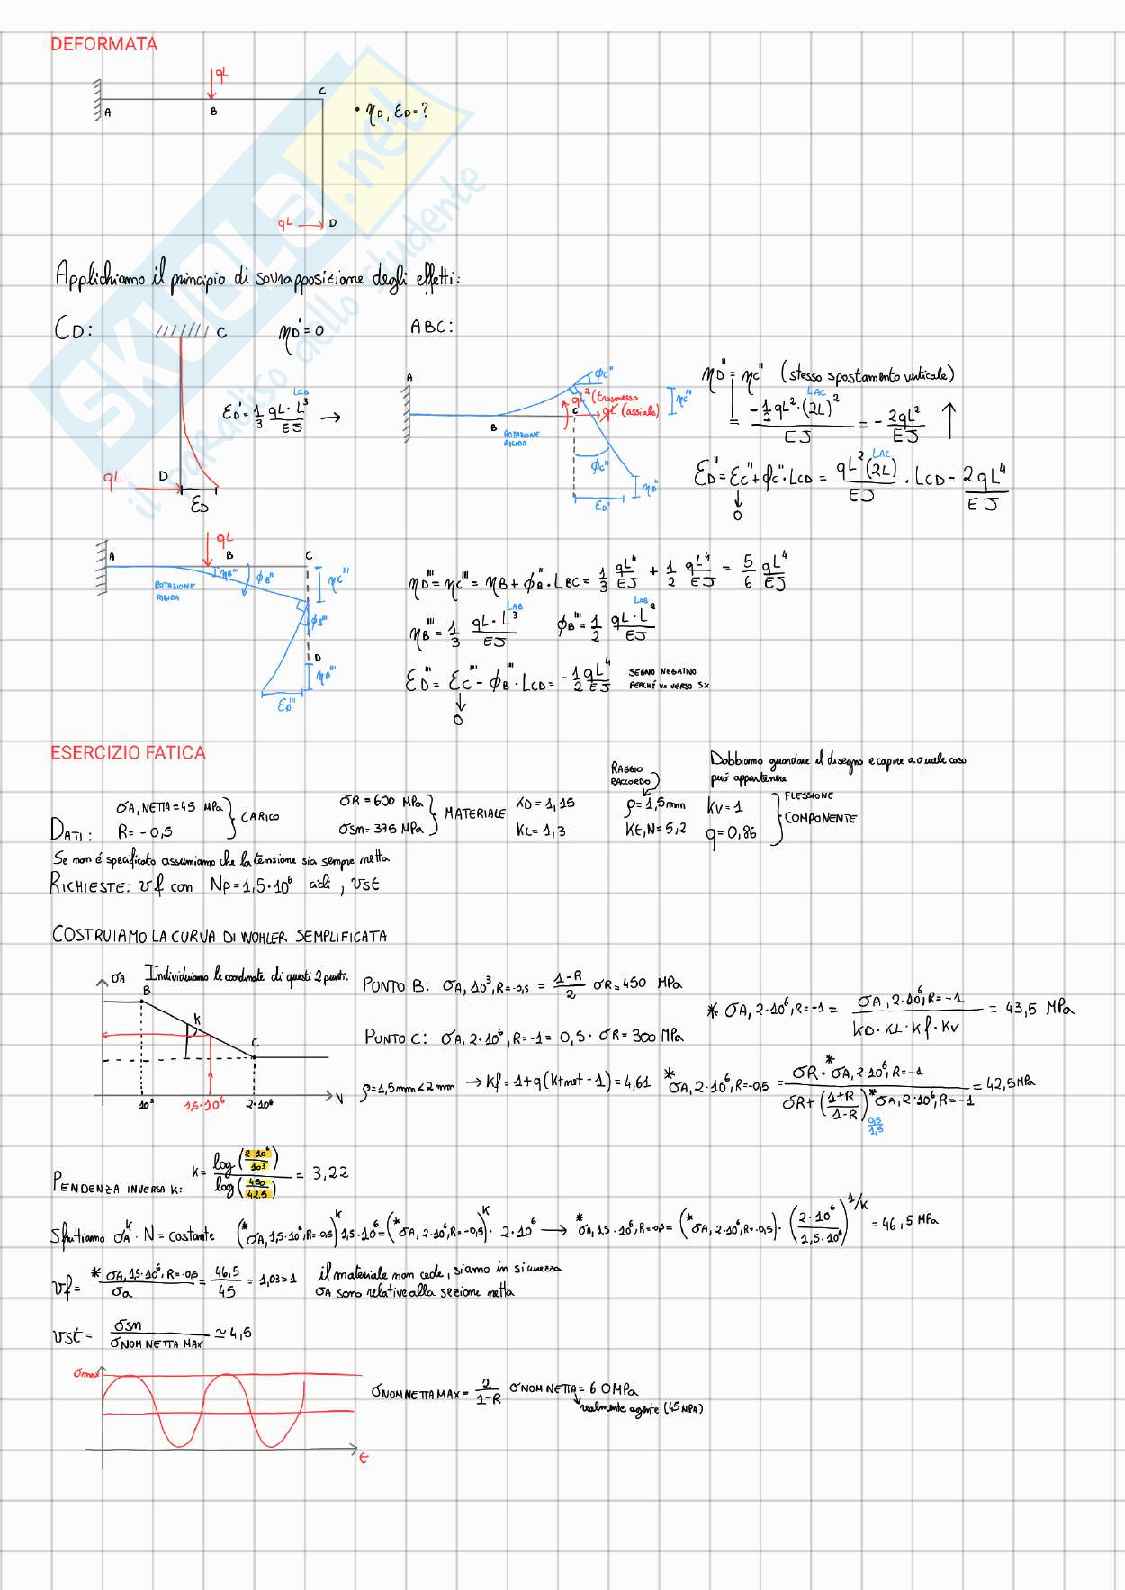 DEFORMATA
qL
A
B
C
• ηD, ξD=?
qL
D
Applichiamo il principio di sovrapposizione degli effetti:
CD:
C
ηD'=0
ABC:
ξD'= 1/3 qL·L³/EJ →
LCD
D
qL
ξD
A
B
ROTAZIONE RIGIDA
C
φC''
qL² (trasmesso
qL (assiale)
ηC''
φC''
ηD''
ξD''
ηD''= ηC'' (stesso spostamento verticale)
= -1/2 qL²·(2L)²/EJ = -2qL²/EJ ↑
LAC
ξD''= ξC''+φC''·LCD = qL²(2L)/EJ · LCD - 2qL⁴/EJ
LAC
0
qL
A
B
C
ROTAZIONE RIGIDA
ηB'''
φB'''
ηC'''
φB'''
D
ηD'''
ξD'''
ηD'''=ηC'''= ηB+φB'''·LBC= 1/3 qL⁴/EJ + 1/2 qL⁴/EJ = 5/6 qL⁴/EJ
ηB'''= 1/3 qL·L³/EJ φB'''= 1/2 qL·L²/EJ
LAB
LAB
ξD'''= ξC'''- φB'''·LCD= -1/2 qL⁴/EJ SEGNO NEGATIVO PERCHÉ VA VERSO SX
0
ESERCIZIO FATICA
DATI:
σA,NETTA=45 MPa
R= -0,5
CARICO
σR=600 MPa
σsn=375 MPa
MATERIALE
KD=1,15
KL=1,3
RAGGIO RACCORDO
ρ=1,5mm
Kt,N=5,2
Dobbiamo guardare il disegno e capire a quale caso può appartenere
KV=1
q=0,86
FLESSIONE
COMPONENTE
Se non è specificato assumiamo che la tensione sia sempre netta
RICHIESTE: νf con NP=1,5·10⁶ cicli, νst
COSTRUIAMO LA CURVA DI WOHLER SEMPLIFICATA
σA
Individuiamo le coordinate di questi 2 punti.
B
K
C
10³
1,5·10⁶
2·10⁶
N
PUNTO B: σA, 10³, R=-0,5 = 1-R/2 σR=450 MPa
PUNTO C: σA, 2·10⁶, R=-1= 0,5· σR=300MPa
* σA, 2·10⁶, R=-1= σA, 2·10⁶, R=-1 / KD·KL·Kf·KV = 43,5 MPa
ρ=1,5mm<2mm → Kf=1+q(Kt,net-1)=4,61
*σA, 2·10⁶, R=-0,5 = σR·*σA, 2·10⁶, R=-1 / σR+(1+R/1-R)*σA, 2·10⁶, R=-1 = 42,5MPa
0,5/1,5
PENDENZA INVERSA K: K= log(2·10⁶/10³) / log(450/42,5) = 3,22
Sfruttiamo σA^K·N=costante (*σA, 1,5·10⁶, R=-0,5)^K 1,5·10⁶=(*σA, 2·10⁶, R=-0,5)^K·2·10⁶ → *σA, 1,5·10⁶, R=-0,5= (*σA, 2·10⁶, R=-0,5)·(2·10⁶/1,5·10⁶)^1/K =46,5 MPa
νf= *σA, 1,5·10⁶, R=-0,5 / σa = 46,5/45 = 1,03>1 il materiale non cede, siamo in sicurezza
σA sono relative alla sezione netta
νst= σsn / σNOM NETTA MAX ≃4,5
σmax
t
σNOM NETTA MAX = 2/1-R σNOM NETTA = 60MPa
realmente agente (45 MPA)